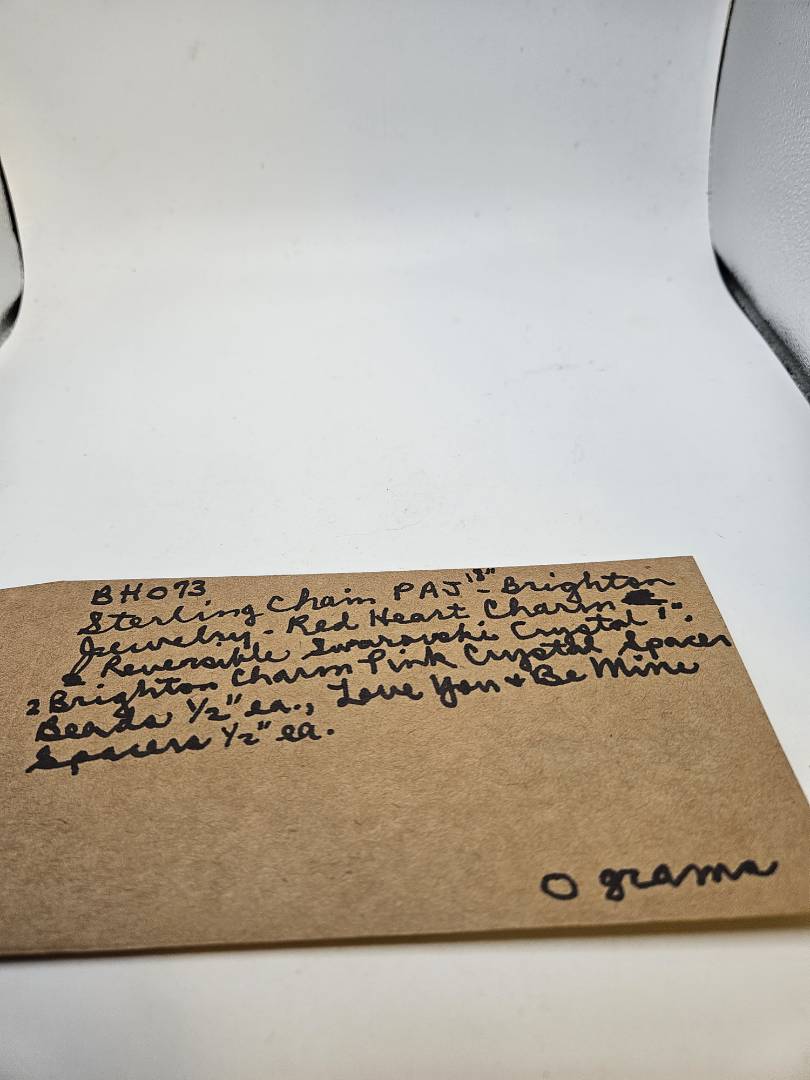 BH093
Sterling Chain PAJ 18" - Brighton
Jewelry - Red Heart Charm
Reversible Swarovski Crystal 1".
2 Brighton Charm Pink Crystal Spacer
Beads 1/2" ea., Love You & Be Mine
Spacers 1/2" ea.
0 grams